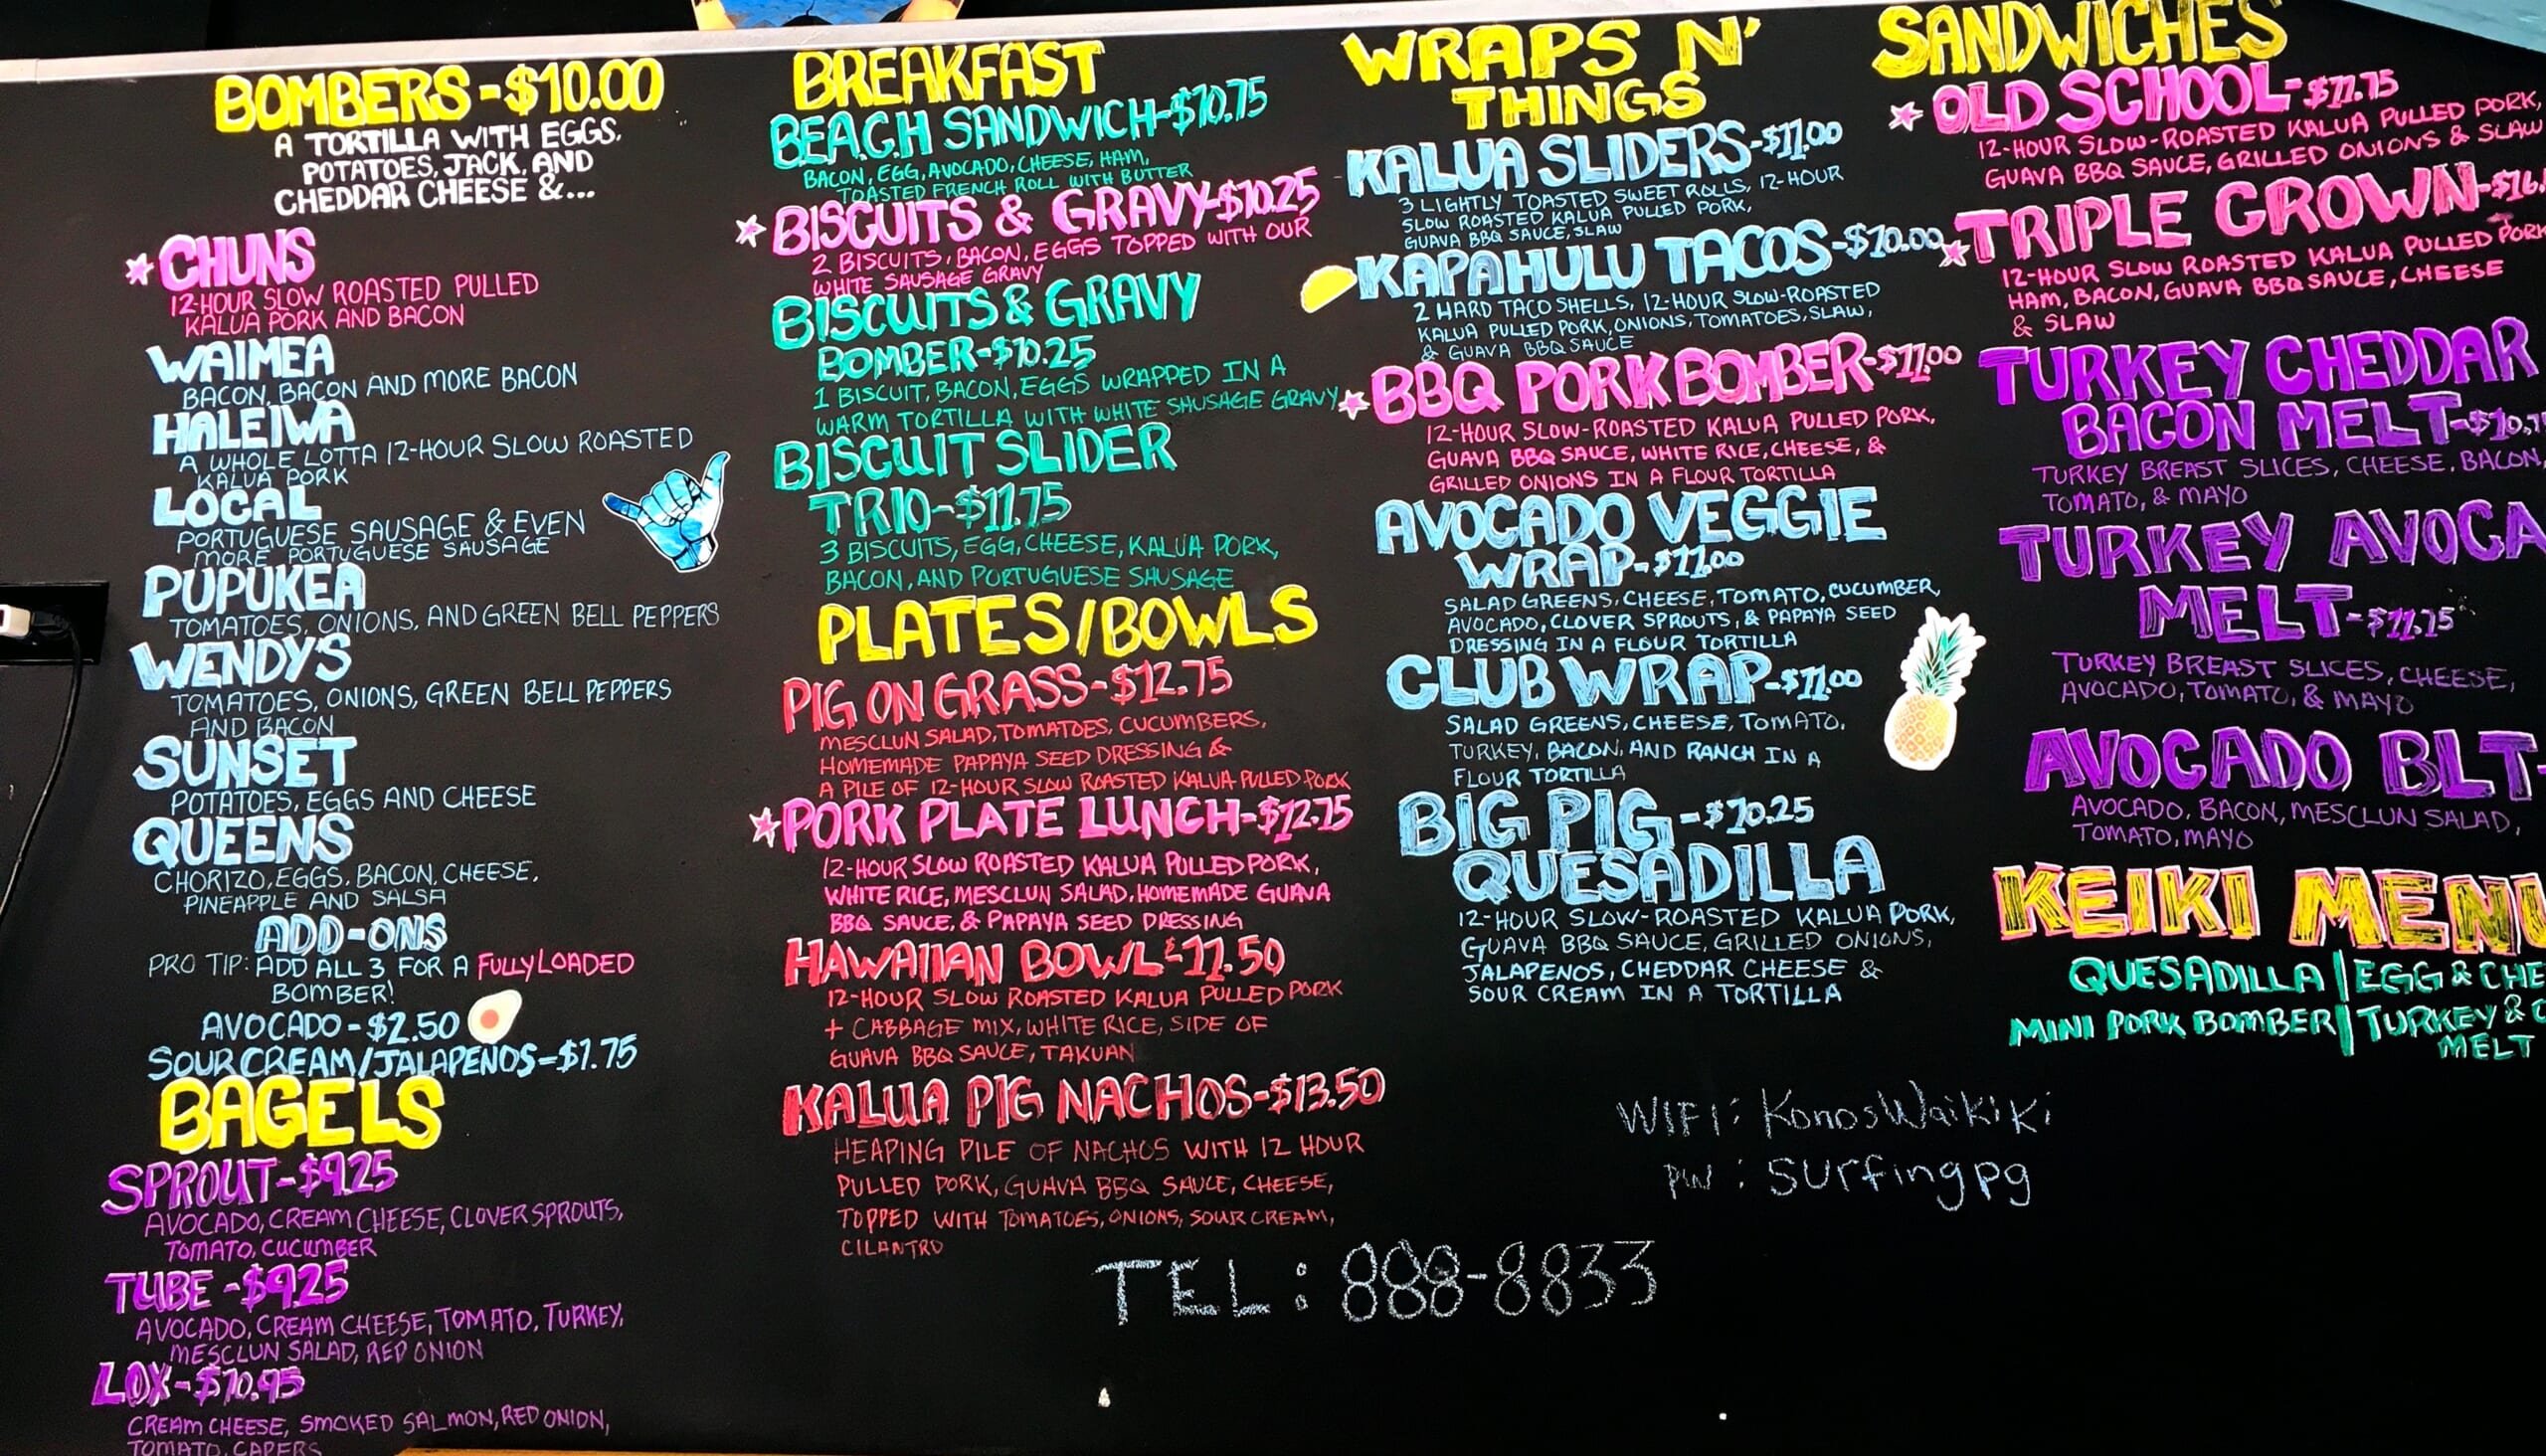 BOMBERS - $10.00
A TORTILLA WITH EGGS,
POTATOES, JACK, AND
CHEDDAR CHEESE &...
CHUNS
12-HOUR SLOW ROASTED PULLED
KALUA PORK AND BACON
WAIMEA
BACON, BACON AND MORE BACON
HALEIWA
A WHOLE LOTTA 12-HOUR SLOW ROASTED
KALUA PORK
LOCAL
PORTUGUESE SAUSAGE & EVEN
MORE PORTUGUESE SAUSAGE
PUPUKEA
TOMATOES, ONIONS, AND GREEN BELL PEPPERS
WENDY'S
TOMATOES, ONIONS, GREEN BELL PEPPERS
AND BACON
SUNSET
POTATOES, EGGS AND CHEESE
QUEENS
CHORIZO, EGGS, BACON, CHEESE,
PINEAPPLE AND SALSA
ADD-ONS
PRO TIP: ADD ALL 3 FOR A FULLY LOADED
BOMBER!
AVOCADO - $2.50
SOUR CREAM/JALAPENOS - $1.75
BAGELS
SPROUT - $9.25
AVOCADO, CREAM CHEESE, CLOVER SPROUTS,
TOMATO, CUCUMBER
TUBE - $9.25
AVOCADO, CREAM CHEESE, TOMATO, TURKEY,
MESCLUN SALAD, RED ONION
LOX - $10.95
CREAM CHEESE, SMOKED SALMON, RED ONION,
TOMATO, CAPERS
BREAKFAST
BEACH SANDWICH - $10.75
BACON, EGG, AVOCADO, CHEESE, HAM,
TOASTED FRENCH ROLL WITH BUTTER
BISCUITS & GRAVY - $10.25
2 BISCUITS, BACON, EGGS TOPPED WITH OUR
WHITE SAUSAGE GRAVY
BISCUITS & GRAVY
BOMBER - $10.25
1 BISCUIT, BACON, EGGS WRAPPED IN A
WARM TORTILLA WITH WHITE SAUSAGE GRAVY
BISCUIT SLIDER
TRIO - $11.75
3 BISCUITS, EGG, CHEESE, KALUA PORK,
BACON, AND PORTUGUESE SAUSAGE
PLATES/BOWLS
PIG ON GRASS - $12.75
MESCLUN SALAD, TOMATOES, CUCUMBERS,
HOMEMADE PAPAYA SEED DRESSING &
A PILE OF 12-HOUR SLOW ROASTED KALUA PULLED PORK
PORK PLATE LUNCH - $12.75
12-HOUR SLOW ROASTED KALUA PULLED PORK,
WHITE RICE, MESCLUN SALAD, HOMEMADE GUAVA
BBQ SAUCE, & PAPAYA SEED DRESSING
HAWAIIAN BOWL - 11.50
12-HOUR SLOW ROASTED KALUA PULLED PORK
+ CABBAGE MIX, WHITE RICE, SIDE OF
GUAVA BBQ SAUCE, TAKUAN
KALUA PIG NACHOS - $13.50
HEAPING PILE OF NACHOS WITH 12 HOUR
PULLED PORK, GUAVA BBQ SAUCE, CHEESE,
TOPPED WITH TOMATOES, ONIONS, SOUR CREAM,
CILANTRO
WRAPS N'
THINGS
KALUA SLIDERS - $11.00
3 LIGHTLY TOASTED SWEET ROLLS, 12-HOUR
SLOW ROASTED KALUA PULLED PORK,
GUAVA BBQ SAUCE, SLAW
KAPAHULU TACOS - $10.00
2 HARD TACO SHELLS, 12-HOUR SLOW-ROASTED
KALUA PULLED PORK, ONIONS, TOMATOES, SLAW,
& GUAVA BBQ SAUCE
BBQ PORK BOMBER - $11.00
12-HOUR SLOW-ROASTED KALUA PULLED PORK,
GUAVA BBQ SAUCE, WHITE RICE, CHEESE, &
GRILLED ONIONS IN A FLOUR TORTILLA
AVOCADO VEGGIE
WRAP - $11.00
SALAD GREENS, CHEESE, TOMATO, CUCUMBER,
AVOCADO, CLOVER SPROUTS, & PAPAYA SEED
DRESSING IN A FLOUR TORTILLA
CLUB WRAP - $11.00
SALAD GREENS, CHEESE, TOMATO,
TURKEY, BACON, AND RANCH IN A
FLOUR TORTILLA
BIG PIG - $10.25
QUESADILLA
12-HOUR SLOW-ROASTED KALUA PORK,
GUAVA BBQ SAUCE, GRILLED ONIONS,
JALAPENOS, CHEDDAR CHEESE &
SOUR CREAM IN A TORTILLA
SANDWICHES
OLD SCHOOL - $11.75
12-HOUR SLOW-ROASTED KALUA PULLED PORK,
GUAVA BBQ SAUCE, GRILLED ONIONS & SLAW
TRIPLE CROWN - $16.
12-HOUR SLOW ROASTED KALUA PULLED PORK
HAM, BACON, GUAVA BBQ SAUCE, CHEESE
& SLAW
TURKEY CHEDDAR
BACON MELT - $10.7
TURKEY BREAST SLICES, CHEESE, BACON,
TOMATO, & MAYO
TURKEY AVOCA
MELT - $11.75
TURKEY BREAST SLICES, CHEESE,
AVOCADO, TOMATO, & MAYO
AVOCADO BLT -
AVOCADO, BACON, MESCLUN SALAD,
TOMATO, MAYO
KEIKI MENU
QUESADILLA | EGG & CHE
MINI PORK BOMBER | TURKEY & C
MELT
WIFI: KonosWaikiki
PW: surfingpg
TEL: 888-8833